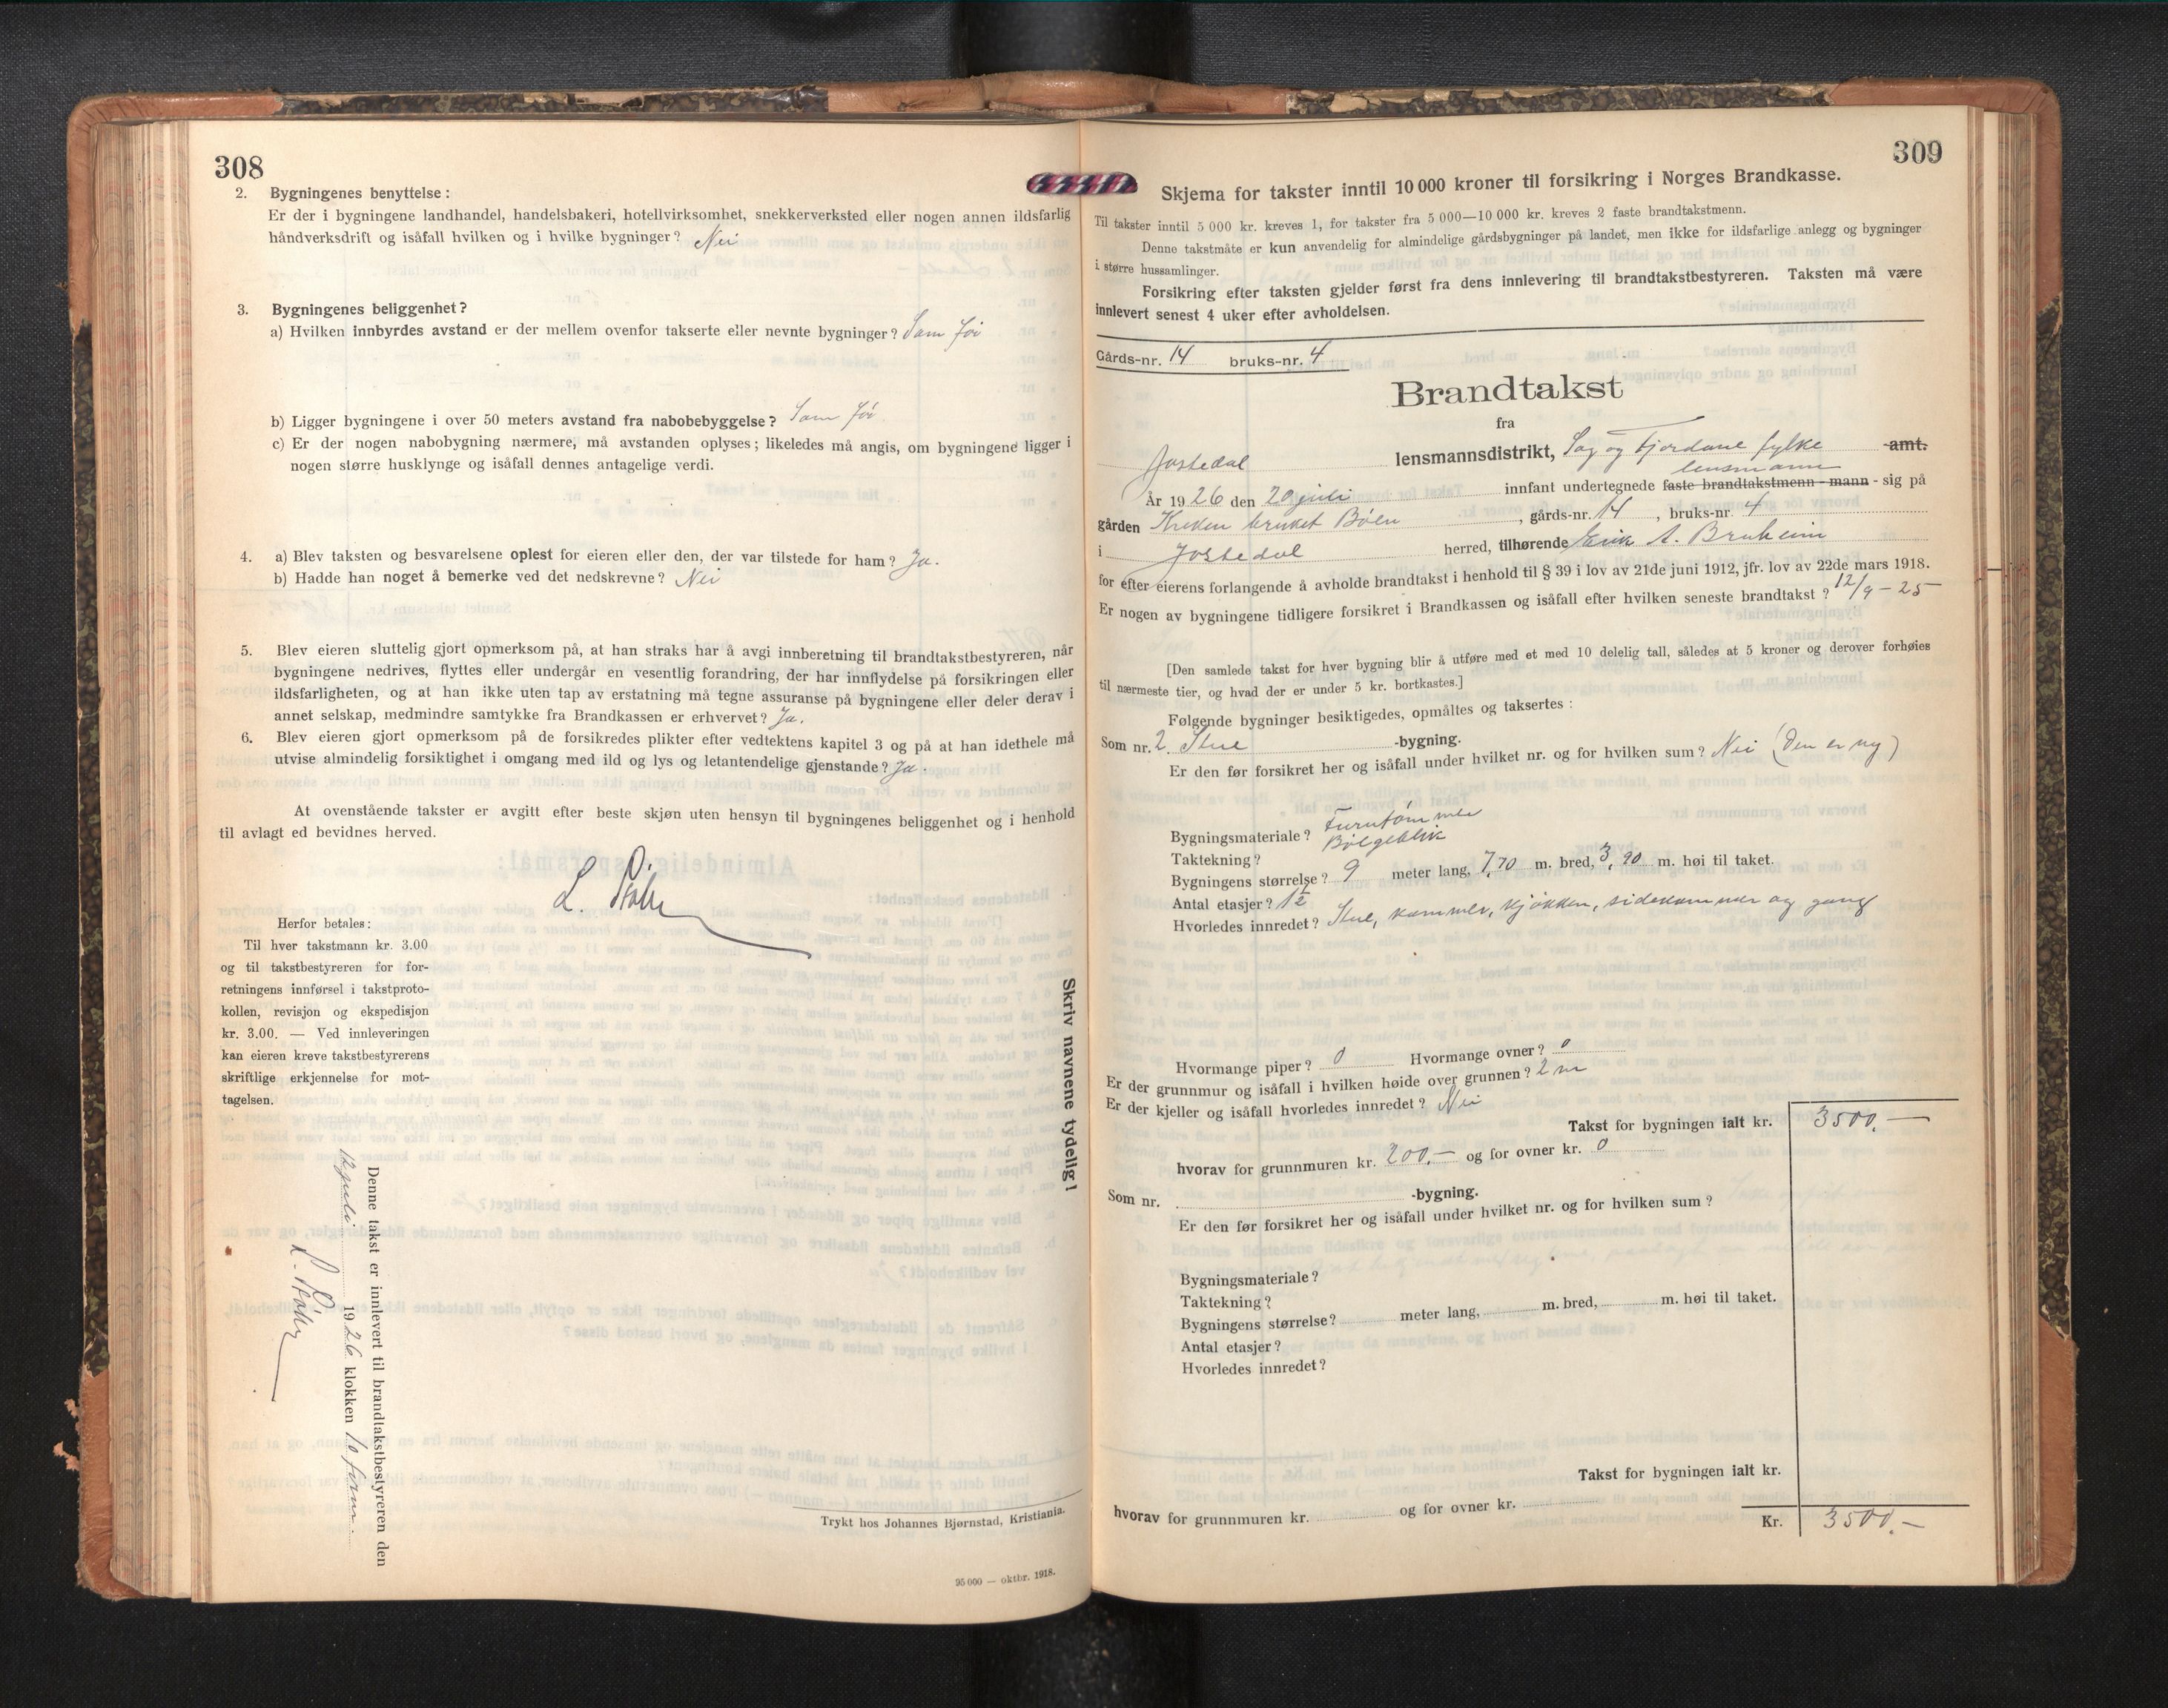 308
2. Bygningenes benyttelse:
Er der i bygningene landhandel, handelsbakeri, hotellvirksomhet, snekkerverksted eller nogen annen ildsfarlig
håndverksdrift og isåfall hvilken og i hvilke bygninger? Nei
3. Bygningenes beliggenhet?
a) Hvilken innbyrdes avstand er der mellem ovenfor takserte eller nevnte bygninger? Som før
b) Ligger bygningene i over 50 meters avstand fra nabobebyggelse? Som før
c) Er der nogen nabobygning nærmere, må avstanden oplyses; likeledes må angis, om bygningene ligger i
nogen større husklynge og isåfall dennes antagelige verdi.
4. a) Blev taksten og besvarelsene oplest for eieren eller den, der var tilstede for ham? Ja.
b) Hadde han noget å bemerke ved det nedskrevne? Nei
5. Blev eieren sluttelig gjort opmerksom på, at han straks har å avgi innberetning til brandtakstbestyreren, når
bygningene nedrives, flyttes eller undergår en vesentlig forandring, der har innflydelse på forsikringen eller
ildsfarligheten, og at han ikke uten tap av erstatning må tegne assuranse på bygningene eller deler derav i
annet selskap, medmindre samtykke fra Brandkassen er erhvervet? Ja.
6. Blev eieren gjort opmerksom på de forsikredes plikter efter vedtektens kapitel 3 og på at han idethele må
utvise almindelig forsiktighet i omgang med ild og lys og letantendelige gjenstande? Ja.
At ovenstående takster er avgitt efter beste skjøn uten hensyn til bygningenes beliggenhet og i henhold
til avlagt ed bevidnes herved.
L.
Herfor betales:
Til hver takstmann kr. 3.00
og til takstbestyreren for for-
retningens innførsel i takstproto-
kollen, revisjon og ekspedisjon
kr. 3.00. — Ved innleveringen
kan eieren kreve takstbestyrerens
skriftlige erkjennelse for mot-
tagelsen.
Skriv navnene tydelig!
Denne takst er innlevert til brandtakstbestyreren den
juli 1926 klokken 10 form.
L.
Trykt hos Johannes Bjørnstad, Kristiania.
95 000 — oktbr. 1918.
309
Skjema for takster inntil 10 000 kroner til forsikring i Norges Brandkasse.
Til takster inntil 5 000 kr. kreves 1, for takster fra 5 000—10 000 kr. kreves 2 faste brandtakstmenn.
Denne takstmåte er kun anvendelig for almindelige gårdsbygninger på landet, men ikke for ildsfarlige anlegg og bygninger
i større hussamlinger.
Forsikring efter taksten gjelder først fra dens innlevering til brandtakstbestyreren. Taksten må være
innlevert senest 4 uker efter avholdelsen.
Gårds-nr. 14 bruks-nr. 4
Brandtakst
fra
Jostedal lensmannsdistrikt, Sog og Fjordane fylke amt.
lensmann
År 1926 den 20 juli innfant undertegnede faste brandtakstmenn - mann - sig på
gården Kreken bruket Bøen, gårds-nr. 14, bruks-nr. 4
i Jostedal herred, tilhørende Erik A. Bruheim
for efter eierens forlangende å avholde brandtakst i henhold til § 39 i lov av 21de juni 1912, jfr. lov av 22de mars 1918.
Er nogen av bygningene tidligere forsikret i Brandkassen og isåfall efter hvilken seneste brandtakst? 12/9 - 25
[Den samlede takst for hver bygning blir å utføre med et med 10 delelig tall, således at 5 kroner og derover forhøies
til nærmeste tier, og hvad der er under 5 kr. bortkastes.]
Følgende bygninger besiktigedes, opmåltes og taksertes:
Som nr. 2. Stue -bygning.
Er den før forsikret her og isåfall under hvilket nr. og for hvilken sum? Nei (Den er ny)
Bygningsmateriale? Furutømmer
Taktekning? Bølgeblik
Bygningens størrelse? 9 meter lang, 7,70 m. bred, 3,90 m. høi til taket.
Antal etasjer? 1½
Hvorledes innredet? Stue, kammer, kjøkken, sidekammer og gang
Hvormange piper? 0 Hvormange ovner? 0
Er der grunnmur og isåfall i hvilken høide over grunnen? 2 m
Er der kjeller og isåfall hvorledes innredet? Nei
Takst for bygningen ialt kr. 3500.—
hvorav for grunnmuren kr. 200.— og for ovner kr. 0
Som nr. -bygning.
Er den før forsikret her og isåfall under hvilket nr. og for hvilken sum?
Bygningsmateriale?
Taktekning?
Bygningens størrelse? meter lang, m. bred, m. høi til taket.
Antal etasjer?
Hvorledes innredet?
Takst for bygningen ialt kr.
hvorav for grunnmuren kr. og for ovner kr.
Kr. 3500.—